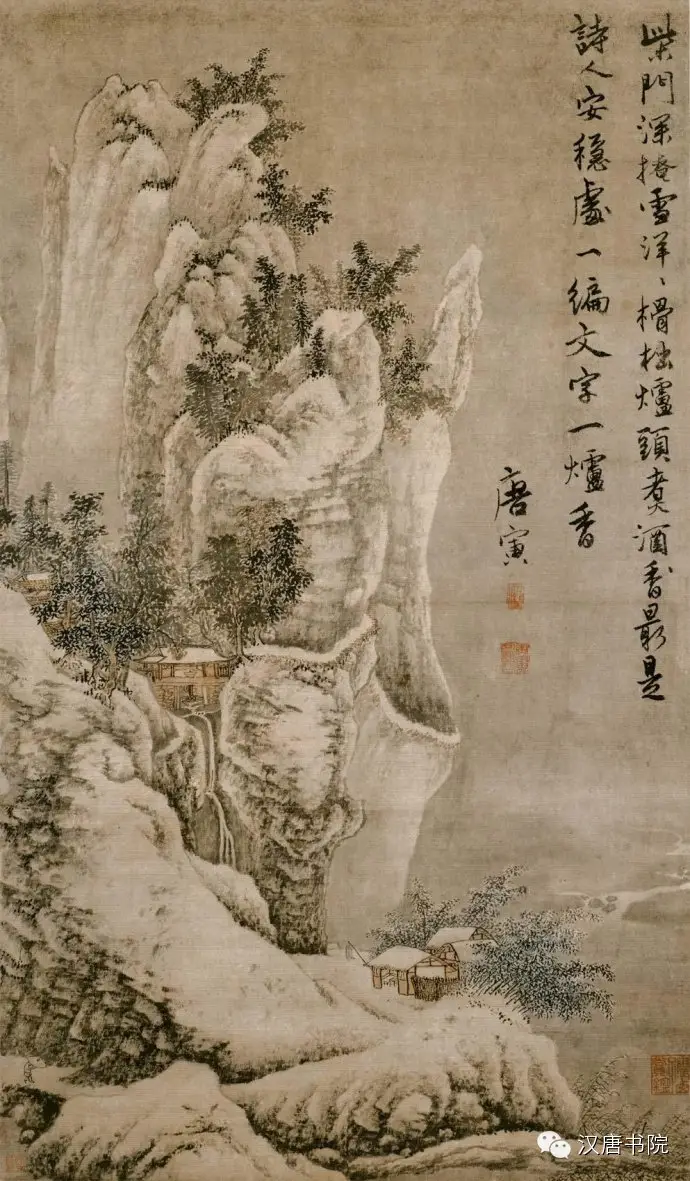 柴門深掩雪洋〻榾柮爐頭煮酒香最是
詩人安穩處一編文字一爐香
唐寅
汉唐书院